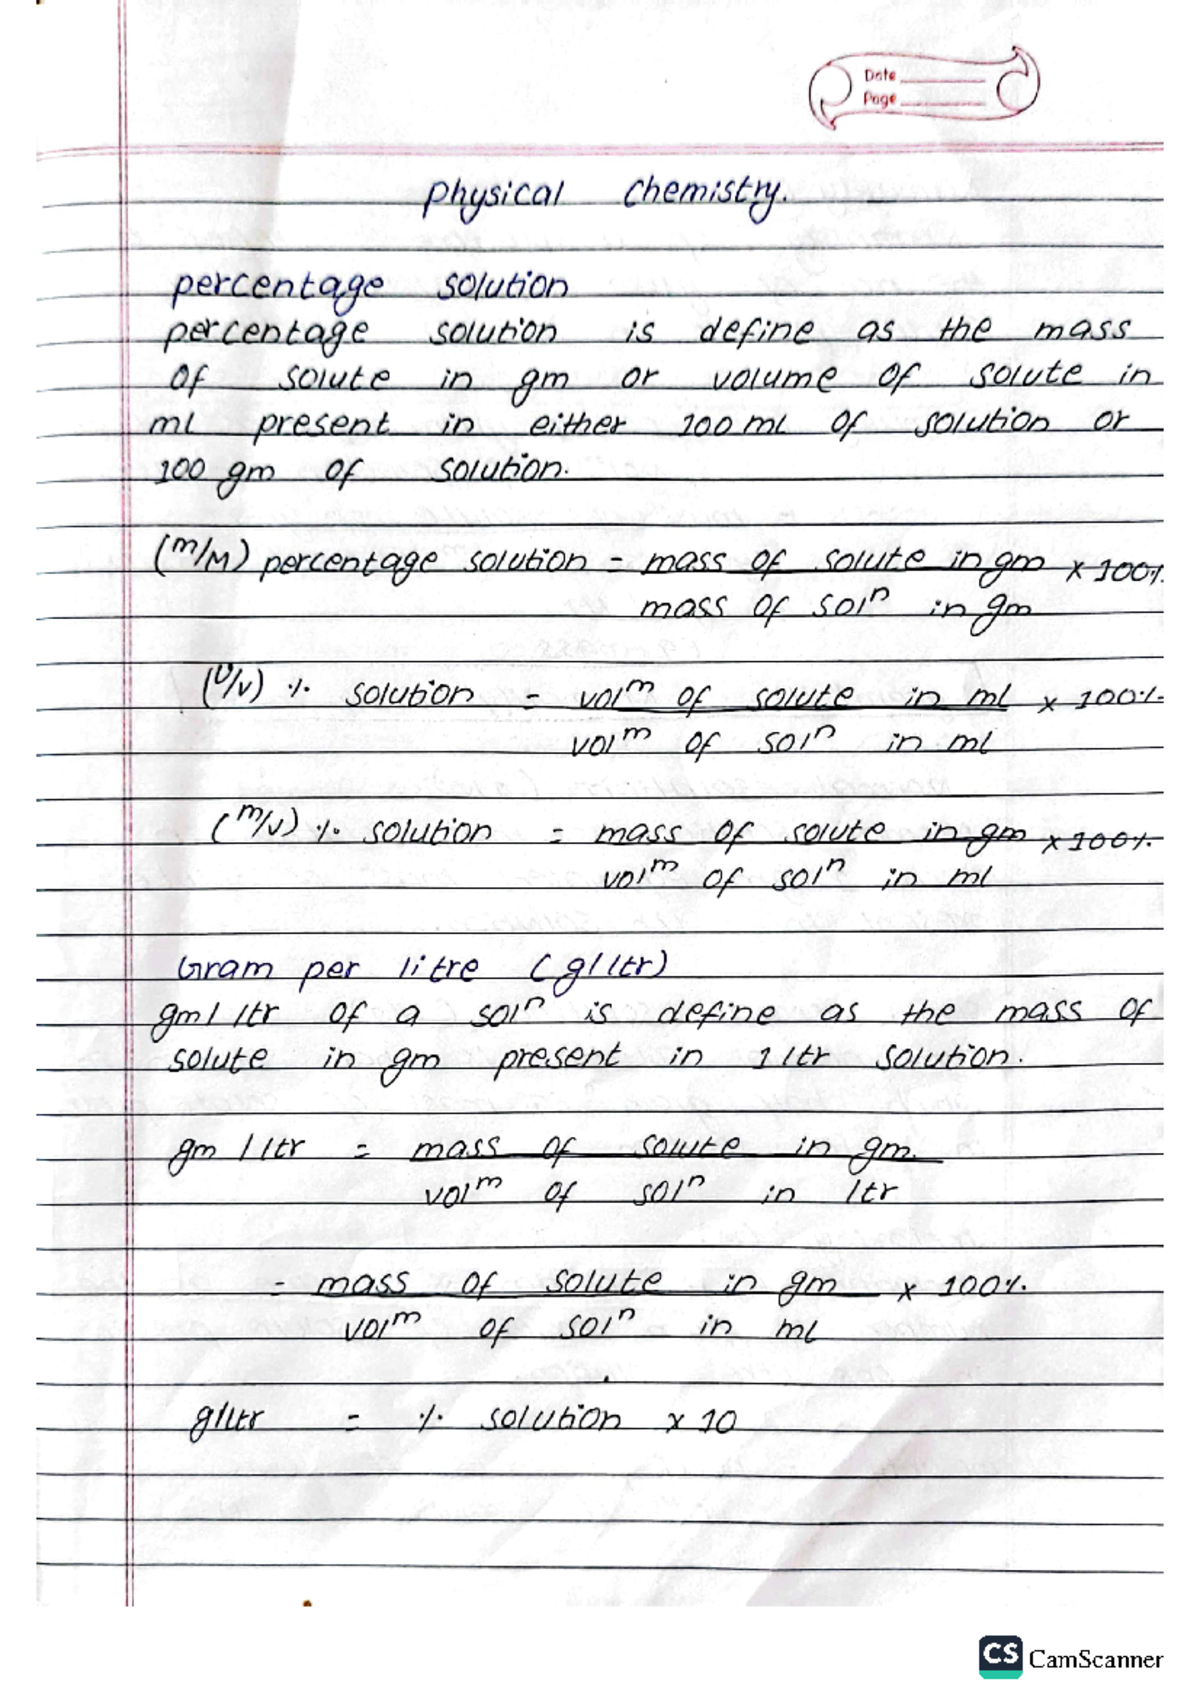 Date
Page
physical chemistry.
percentage solution
percentage solution is define as the mass
of solute in gm or volume of solute in
ml present in either 100 ml of solution or
100 gm of solution.
(m/M) percentage solution = mass of solute in gm x 100%
mass of solⁿ in gm
(v/v) % solution = volᵐ of solute in ml x 100%
volᵐ of solⁿ in ml
(m/v) % solution = mass of solute in gm x 100%
volᵐ of solⁿ in ml
Gram per litre (g/ltr)
gm/ltr of a solⁿ is define as the mass of
solute in gm present in 1 ltr solution.
gm/ltr = mass of solute in gm.
volᵐ of solⁿ in ltr
= mass of solute in gm x 100%
volᵐ of solⁿ in ml
g/ltr = % solution x 10
CS CamScanner